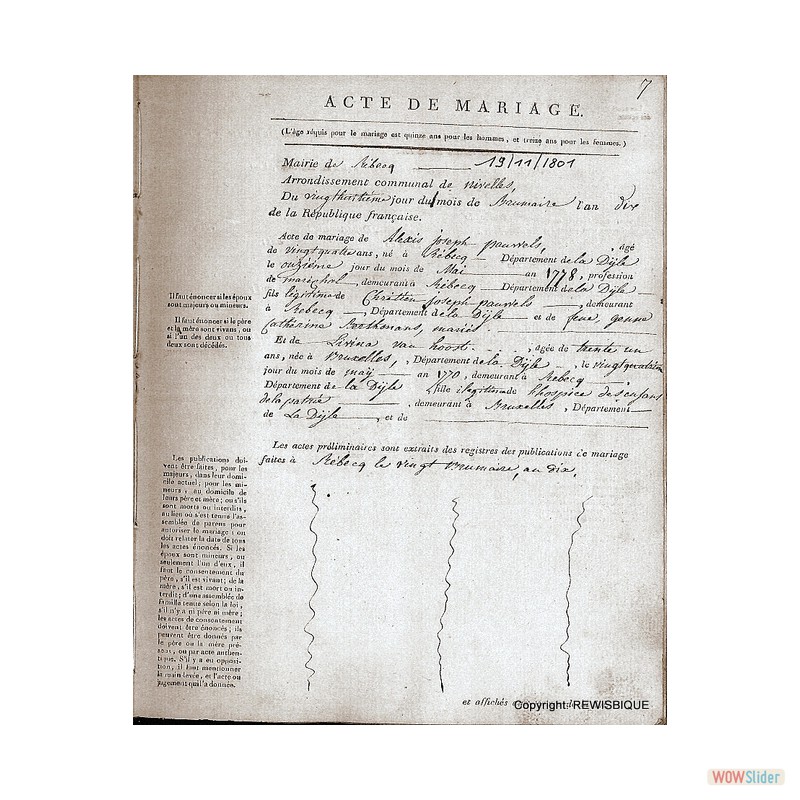 7
ACTE DE MARIAGE.
(L'âge réquis pour le mariage est quinze ans pour les hommes, et treize ans pour les femmes.)
Mairie de Rébecq 19/11/1801
Arrondissement communal de nivelles,
Du vingthuitième jour du mois de Brumaire l'an dix
de la République française.
Acte de mariage de Alexis joseph pauwels, âgé
de vingtquatre ans, né à Rébecq Département de la Dijle
le onzième jour du mois de Mai an 1778, profession
de maréchal, demeurant à Rébecq Département de la Dijle
fils légitime de Chrétien joseph pauwels, demeurant
à Rebecq, Département de la Dijle et de feue
Catherine mariés
Et de Livina van hoost, agée de trente un
ans, née à Bruxelles, Département de la Dijle, le
jour du mois de maij an 1770, demeurant à Rebecq,
Département de la Dijle fille ilegitime de l'hospice des enfans
de la patrie, demeurant à Bruxelles, Département
de La Dijle, et de
Les actes préliminaires sont extraits des registres des publications de mariage
faites à Rébecq le vingt Brumaire, an dix.
et affichés
Il faut énoncer si les époux
sont majeurs ou mineurs.
Il faut énoncer si le père
et la mère sont vivans, ou
si l'un des deux ou tous
deux sont décédés.
Les publications doi-
vent être faites, pour les
majeurs, dans leur domi-
cile actuel; pour les mi-
neurs, au domicile de
leurs père et mère; ou s'ils
sont morts ou interdits,
au lieu où s'est tenue l'as-
semblée de parens pour
autoriser le mariage: on
doit relater la date de tous
les actes énoncés. Si les
époux sont mineurs, ou
seulement l'un d'eux, il
faut le consentement du
père, s'il est vivant; de la
mère, s'il est mort ou in-
terdit; d'une assemblée de
famille tenue selon la loi,
s'il n'y a ni père ni mère;
les actes de consentement
doivent être énoncés; ils
peuvent être donnés par
le père ou la mère pré-
sent, ou par acte authen-
tique. S'il y a eu opposi-
tion, il faut mentionner
la main levée, et l'acte ou
jugement qui l'a donnée.
Copyright: REWISBIQUE
WOWSlider